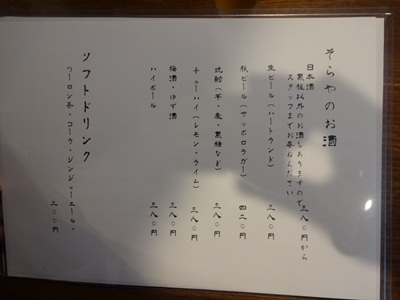 そらやのお酒
日本酒 三八〇円から
黒板以外のお酒もありますので
スタッフまでお尋ねください
生ビール(ハートランド) 三八〇円
瓶ビール(サッポロラガー) 四二〇円
焼酎(芋・麦・黒糖など) 三八〇円
チューハイ(レモン・ライム) 三八〇円
梅酒・ゆず酒 三八〇円
ハイボール 三八〇円
ソフトドリンク
ウーロン茶・コーラ・ジンジャーエール・ 二〇〇円